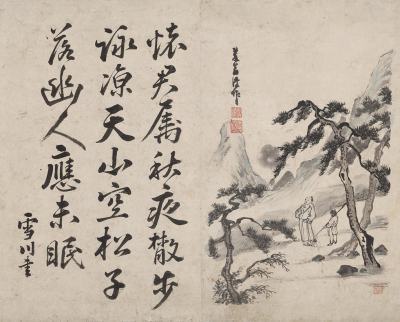 懷君属秋夜散步
詠凉天山空松子
落幽人應未眠
雪川書